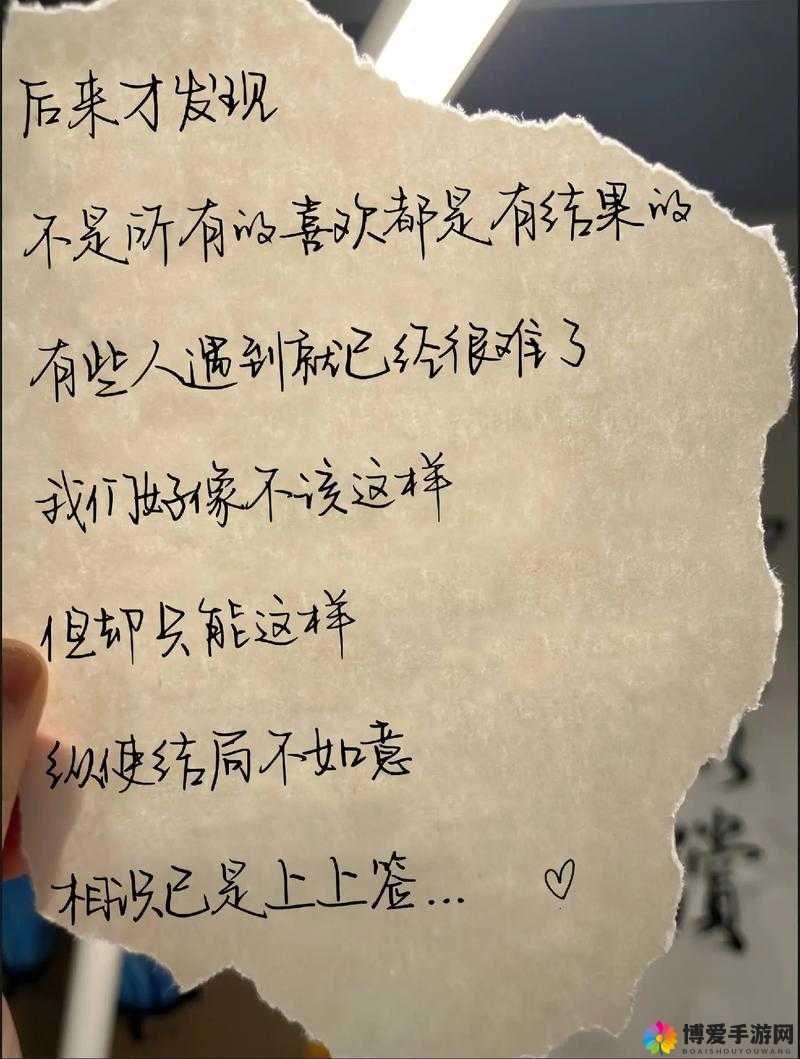 后来才发现
不是所有的喜欢都是有结果的
有些人遇到就已经很难了
我们好像不该这样
但却只能这样
纵使结局不如意
相识已是上上签...
赏
博爱手游网
BOAISHOUYOUWANG